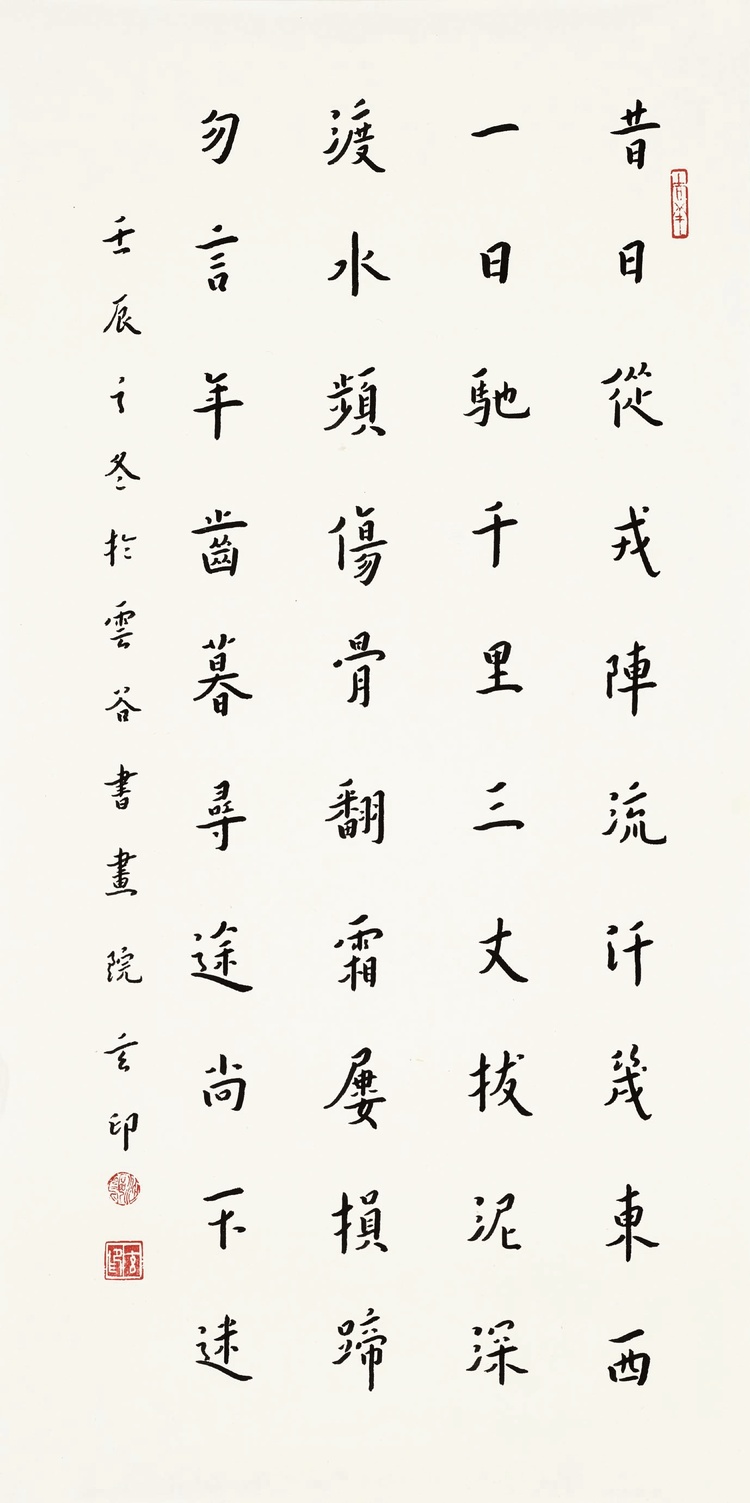 昔日從戎陣流汗幾東西
一日馳千里三丈拔泥深
渡水頻傷骨翻霜屢損蹄
勿言年齒暮尋途尚不迷
壬辰之冬於雲谷書畫院玄印
玄印